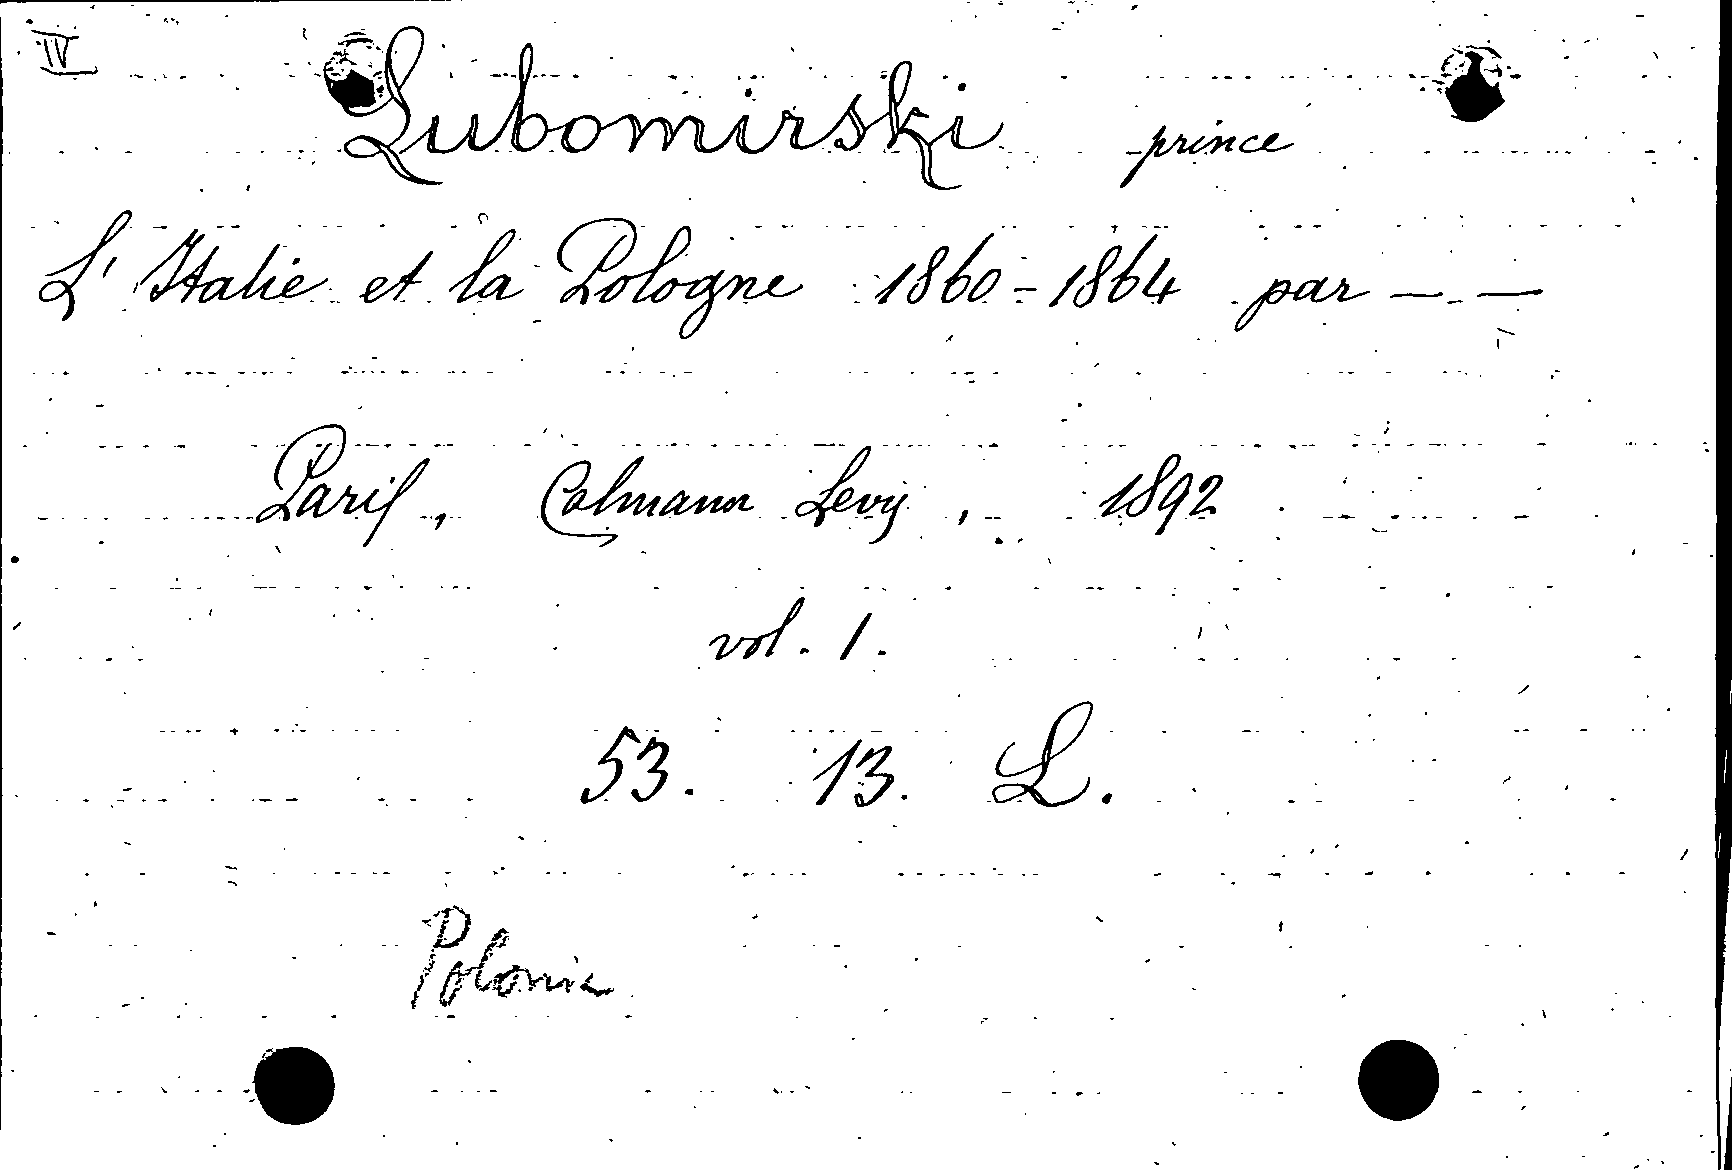 IV
Lubomirski prince
L'Italie et la Pologne 1860-1864 par — —
Paris, Calmann Levy, 1892
vol. 1.
53. 13. L.
Polonia